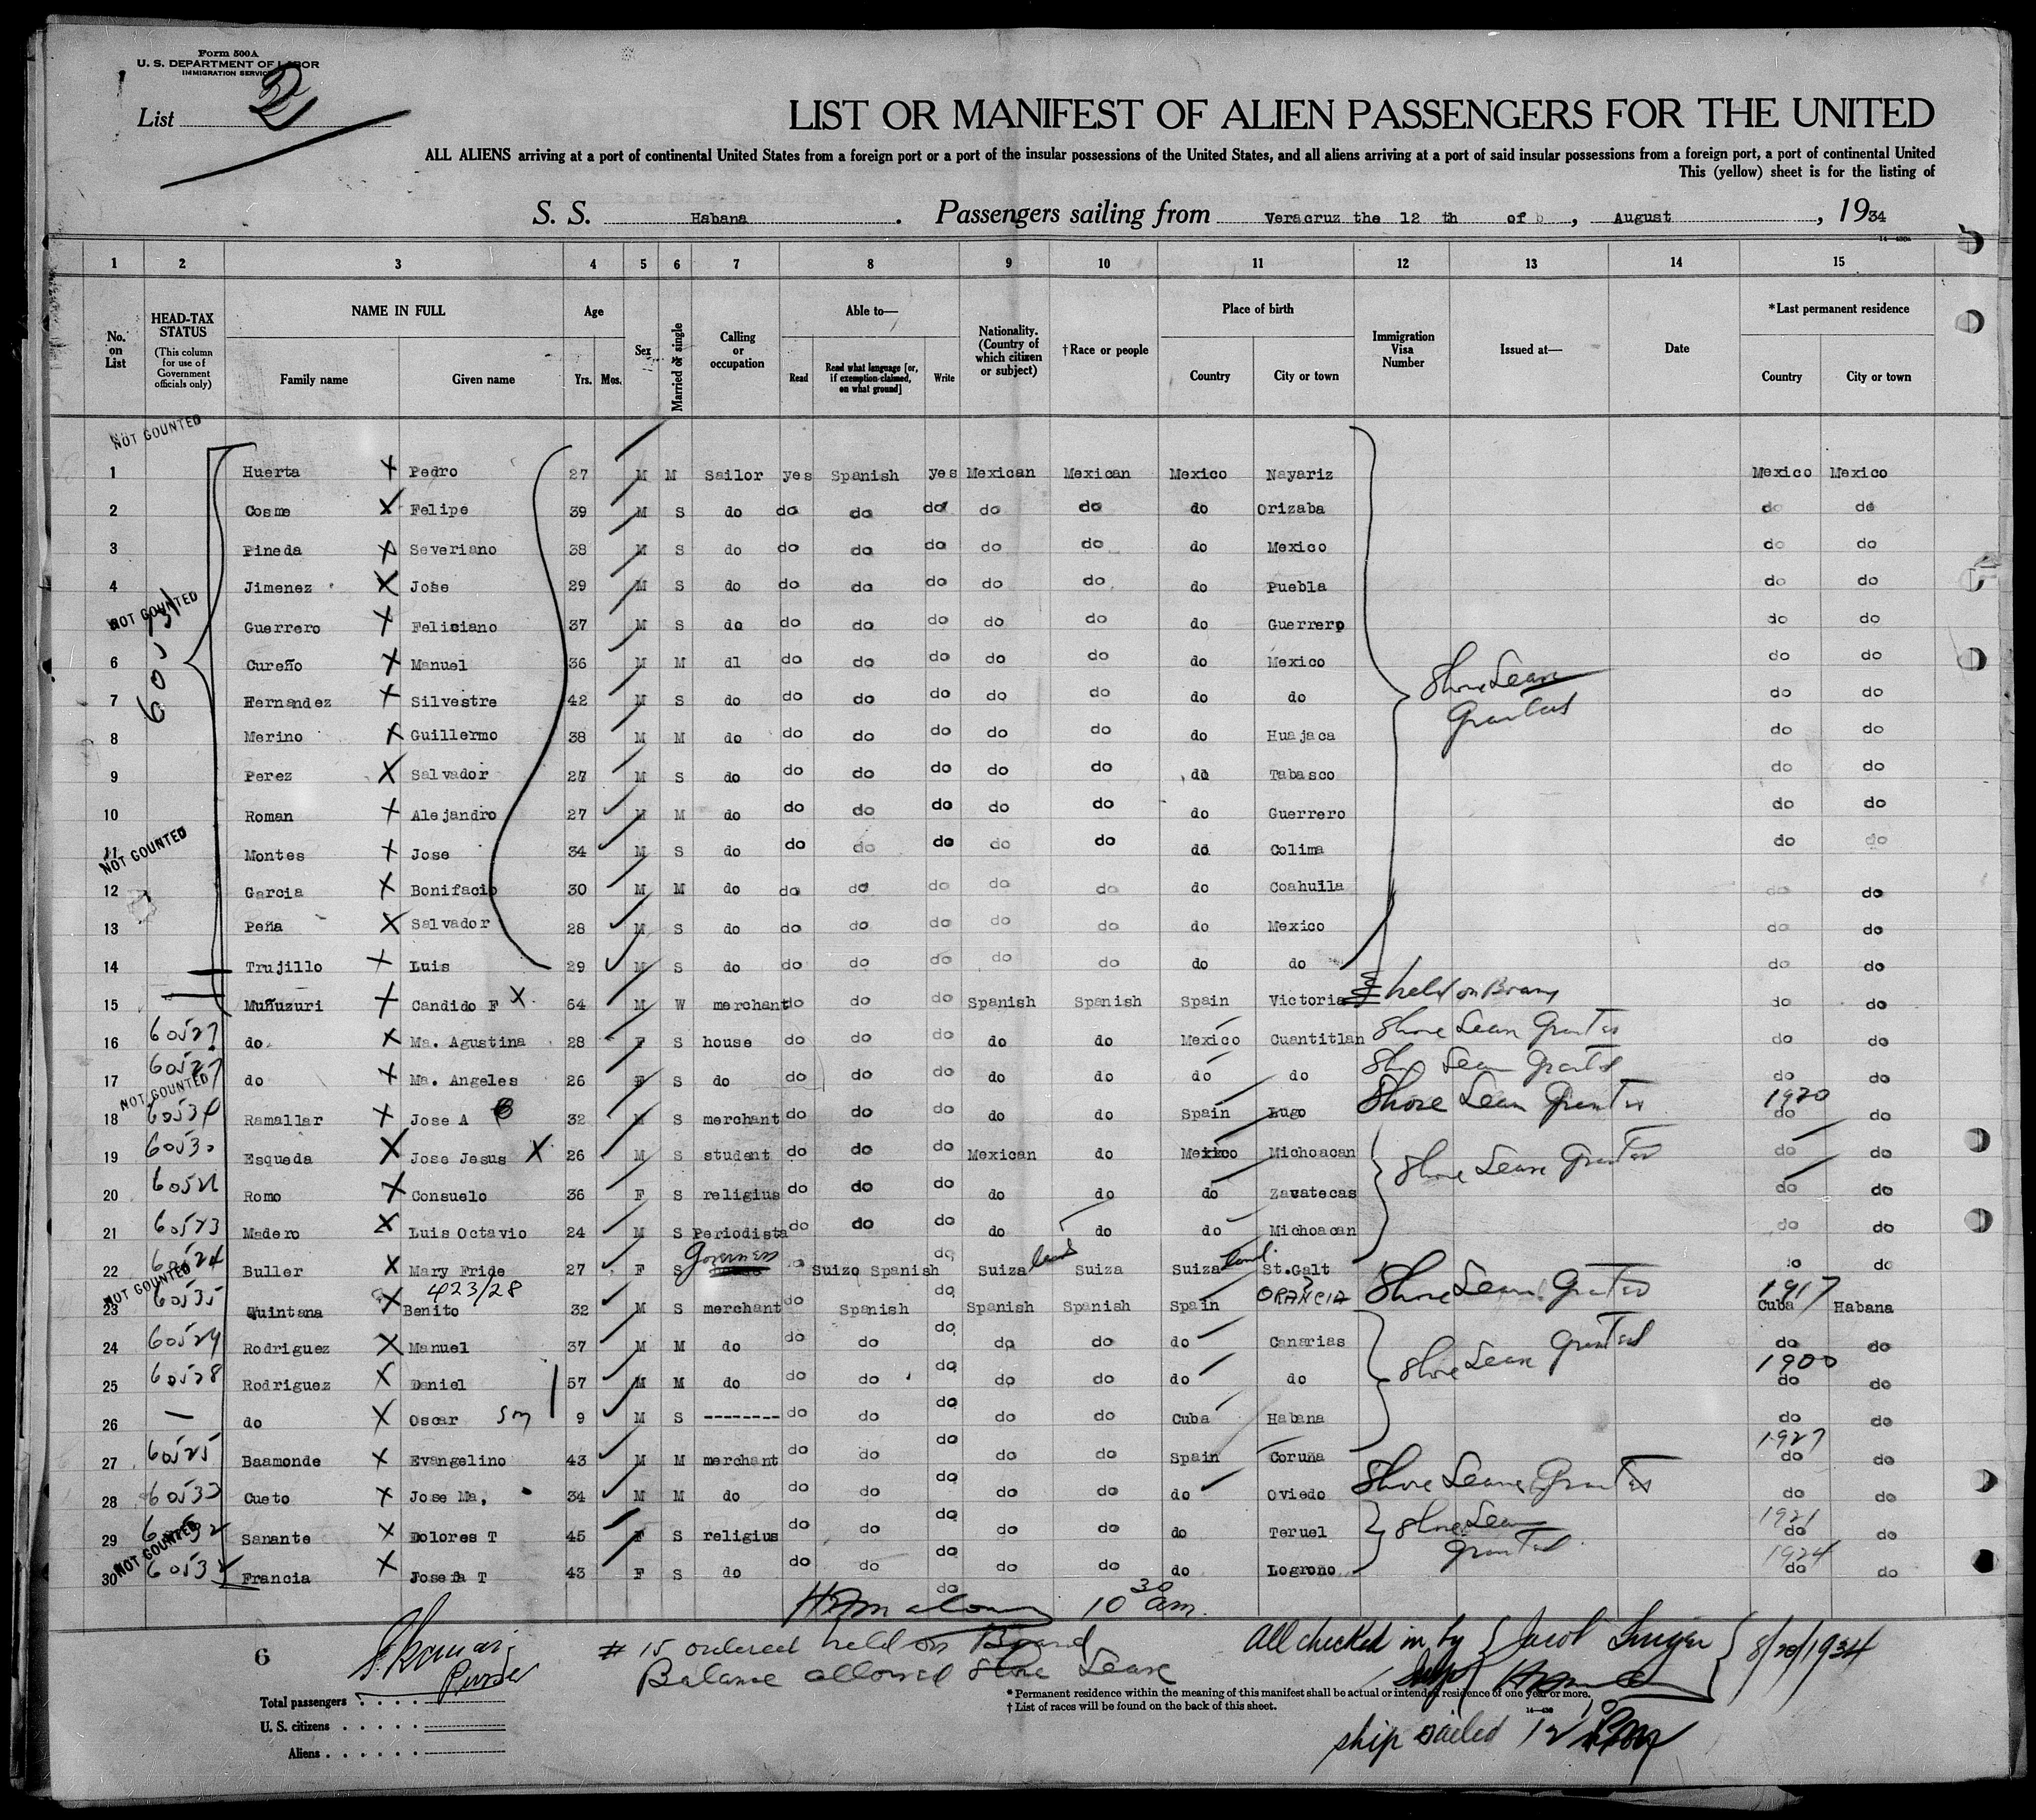 Form 500A
U. S. DEPARTMENT OF LABOR
IMMIGRATION SERVICE
List 2
LIST OR MANIFEST OF ALIEN PASSENGERS FOR THE UNITED
ALL ALIENS arriving at a port of continental United States from a foreign port or a port of the insular possessions of the United States, and all aliens arriving at a port of said insular possessions from a foreign port, a port of continental United
This (yellow) sheet is for the listing of
S. S. Habana. Passengers sailing from Veracruz the 12 th of, August, 1934
1 2 3 4 5 6 7 8 9 10 11 12 13 14 15
No. on List HEAD-TAX STATUS (This column for use of Government officials only) NAME IN FULL Family name Given name Age Yrs. Mos. Sex Married or single Calling or occupation Able to— Read Read what language [or, if exemption claimed, on what ground] Write Nationality. (Country of which citizen or subject) †Race or people Place of birth Country City or town Immigration Visa Number Issued at— Date *Last permanent residence Country City or town
NOT COUNTED
1 Huerta X Pedro 27 M M Sailor yes Spanish yes Mexican Mexican Mexico Nayariz Mexico Mexico
2 Cosme X Felipe 39 M S do do do do do do do Orizaba do do
3 Pineda X Severiano 38 M S do do do do do do do Mexico do do
4 Jimenez X Jose 29 M S do do do do do do do Puebla do do
NOT COUNTED
Guerrero X Feliciano 37 M S do do do do do do do Guerrero do do
6 Cureño X Manuel 36 M M dl do do do do do do Mexico do do
7 Fernandez X Silvestre 42 M S do do do do do do do do Shore Leave Granted do do
8 Merino X Guillermo 38 M M do do do do do do do Huajaca do do
9 Perez X Salvador 27 M S do do do do do do do Tabasco do do
10 Roman X Alejandro 27 M M do do do do do do do Guerrero do do
NOT COUNTED
11 Montes X Jose 34 M S do do do do do do do Colima do do
12 Garcia X Bonifacio 30 M M do do do do do do do Coahuila do do
13 Peña X Salvador 28 M S do do do do do do do Mexico do do
14 Trujillo X Luis 29 M S do do do do do do do do do do
15 Muñuzuri X Candido F X 64 M W merchant do do do Spanish Spanish Spain Victoria held on Board do do
16 60527 do X Ma. Agustina 28 F S house do do do do do Mexico Cuantitlan Shore Leave Granted do do
17 60527 do X Ma. Angeles 26 F S do do do do do do do do Shore Leave Granted do do
NOT COUNTED
18 Ramallar X Jose A 32 M S merchant do do do do do Spain Lugo Shore Leave Granted 1920 do do
19 60530 Esqueda X Jose Jesus X 26 M S student do do do Mexican do Mexico Michoacan Shore Leave Granted do do
20 Romo X Consuelo 36 F S religius do do do do do do Zacatecas do do
21 60523 Madero X Luis Octavio 24 M S Periodista do do do do do do Michoacan do do
22 60524 Buller X Mary Fride 27 F S Governess do Suizo Spanish do Suiza land Suiza Suiza land St.Galt do do
NOT COUNTED
423/28
23 60535 Quintana X Benito 32 M S merchant do Spanish do Spanish Spanish Spain Shore Leave Granted 1917 Cuba Habana
24 60529 Rodriguez X Manuel 37 M M do do do do do do do Canarias Shore Leave Granted do do
25 60528 Rodriguez X Daniel 57 M M do do do do do do do do 1900 do do
26 — do X Oscar Son 9 M S -------- do do do do do Cuba Habana do do
27 60525 Baamonde X Evangelino 43 M M merchant do do do do do Spain Coruna 1927 do do
28 60533 Cueto X Jose Ma. 34 M M do do do do do do do Oviedo Shore Leave Granted do do
29 60532 Sanante X Dolores T 45 F S religius do do do do do do Teruel Shore Leave Granted 1921 do do
NOT COUNTED
30 Francia X Josefa T 43 F S do do do do do do do Logrono 1924 do do
do
10 30 am.
6
Purser
# 15 ordered held on Board
Balance allowed Shore Leave
All checked in by { Jacob } 8/20/1934
Total passengers
U. S. citizens
Aliens
* Permanent residence within the meaning of this manifest shall be actual or intended residence of one year or more.
† List of races will be found on the back of this sheet.
ship sailed 12